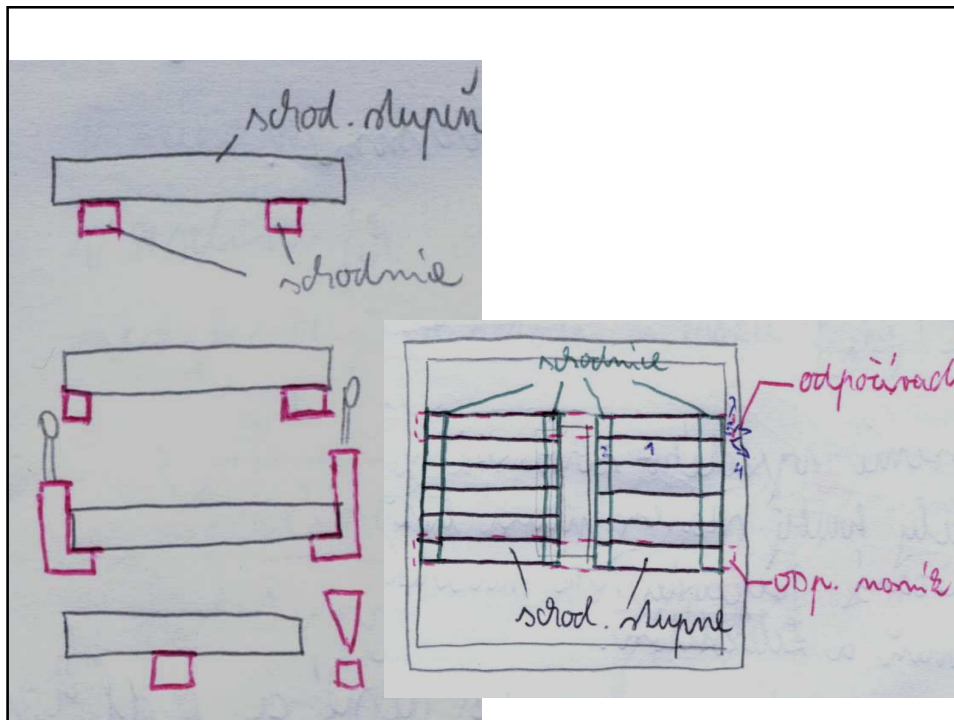 schod. stupeň
schodnice
schodnice
odpočívad
2 1
4
odp. nosník
schod. stupne